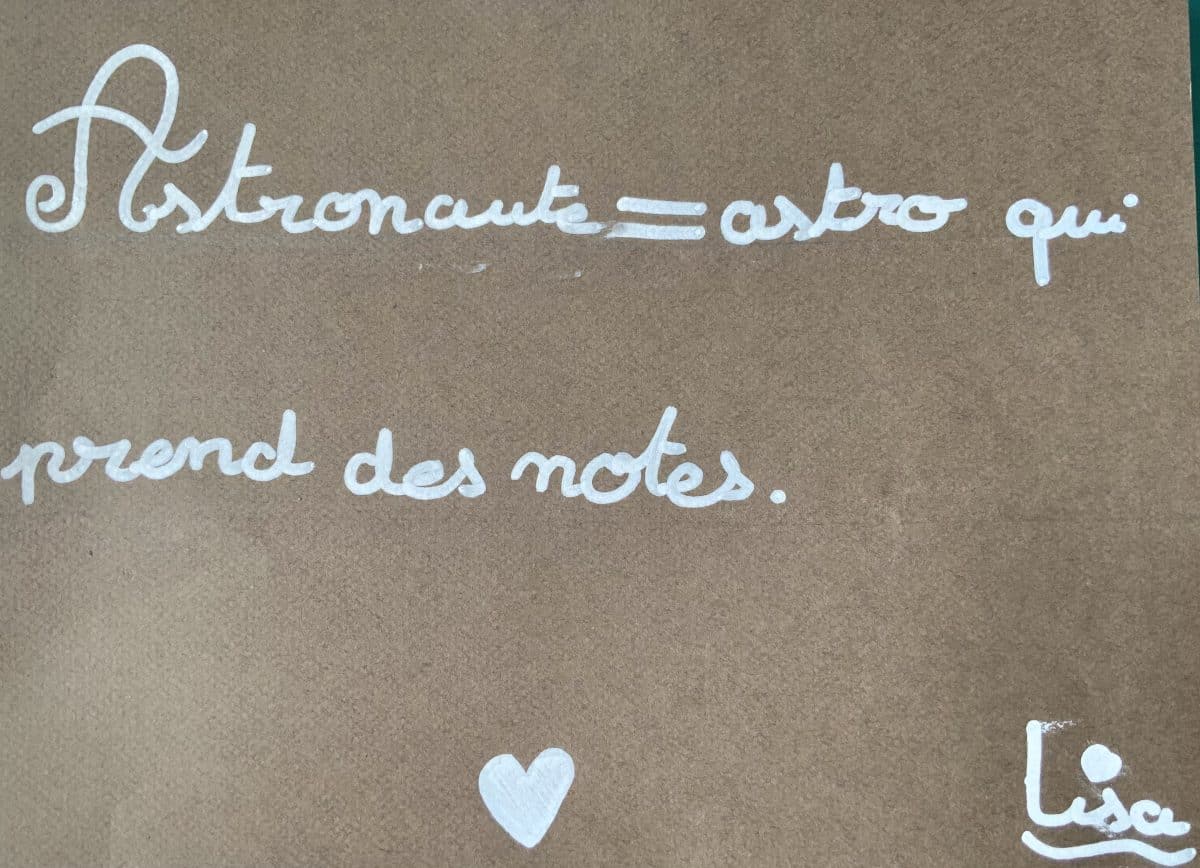 Astronaute = astro qui
prend des notes.
Lisa